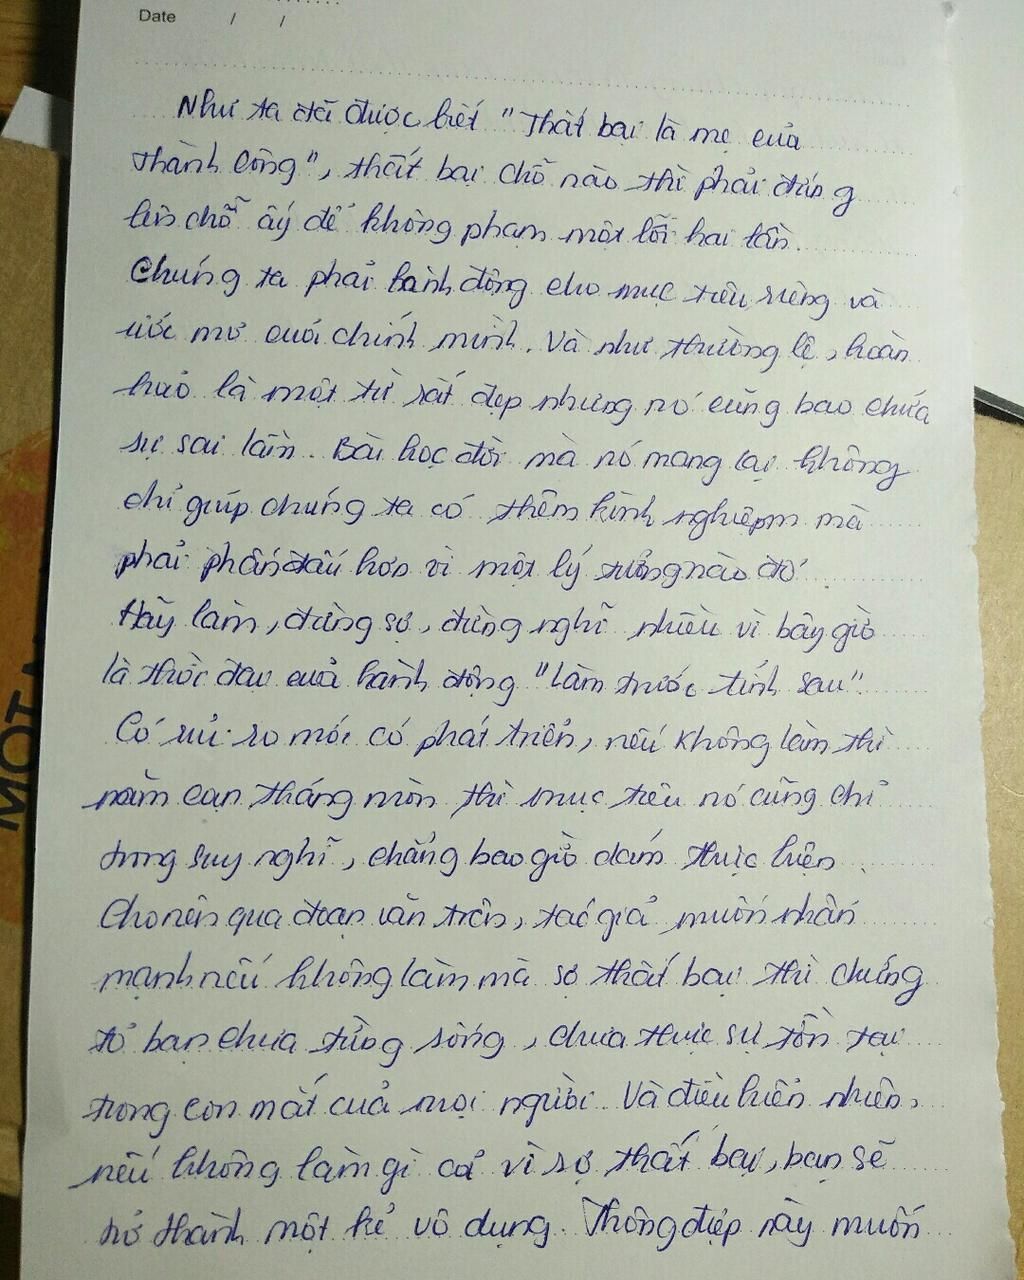 Date / /
Như ta đã được biết "Thất bại là mẹ của
thành công", thất bại chỗ nào thì phải đứng
lên chỗ ấy để không phạm một lỗi hai lần.
Chúng ta phải hành động cho mục tiêu riêng và
ước mơ cuả chính mình. Và như thường lệ, hoàn
hảo là một từ rất đẹp nhưng nó cũng bao chứa
sự sai lầm. Bài học đời mà nó mang lại không
chỉ giúp chúng ta có thêm kinh nghiệm mà
phải phấn đấu hơn vì một lý tưởng nào đó.
Hãy làm, đừng sợ, đừng nghĩ nhiều vì bây giờ
là thước đao cuả hành động "Làm trước tính sau".
Có rủi ro mới có phát triển, nếu không làm thì
năm cạn tháng mòn thì mục tiêu nó cũng chỉ
trong suy nghĩ, chẳng bao giờ dám thực hiện.
Cho nên qua đoạn văn trên, tác giả muốn nhấn
mạnh nếu không làm mà sợ thất bại thì chứng
tỏ bạn chưa từng sống, chưa thực sự tồn tại
trong con mắt cuả mọi người. Và điều hiển nhiên,
nếu không làm gì cả vì sợ thất bại, bạn sẽ
trở thành một kẻ vô dụng. Thông điệp này muốn
MOT